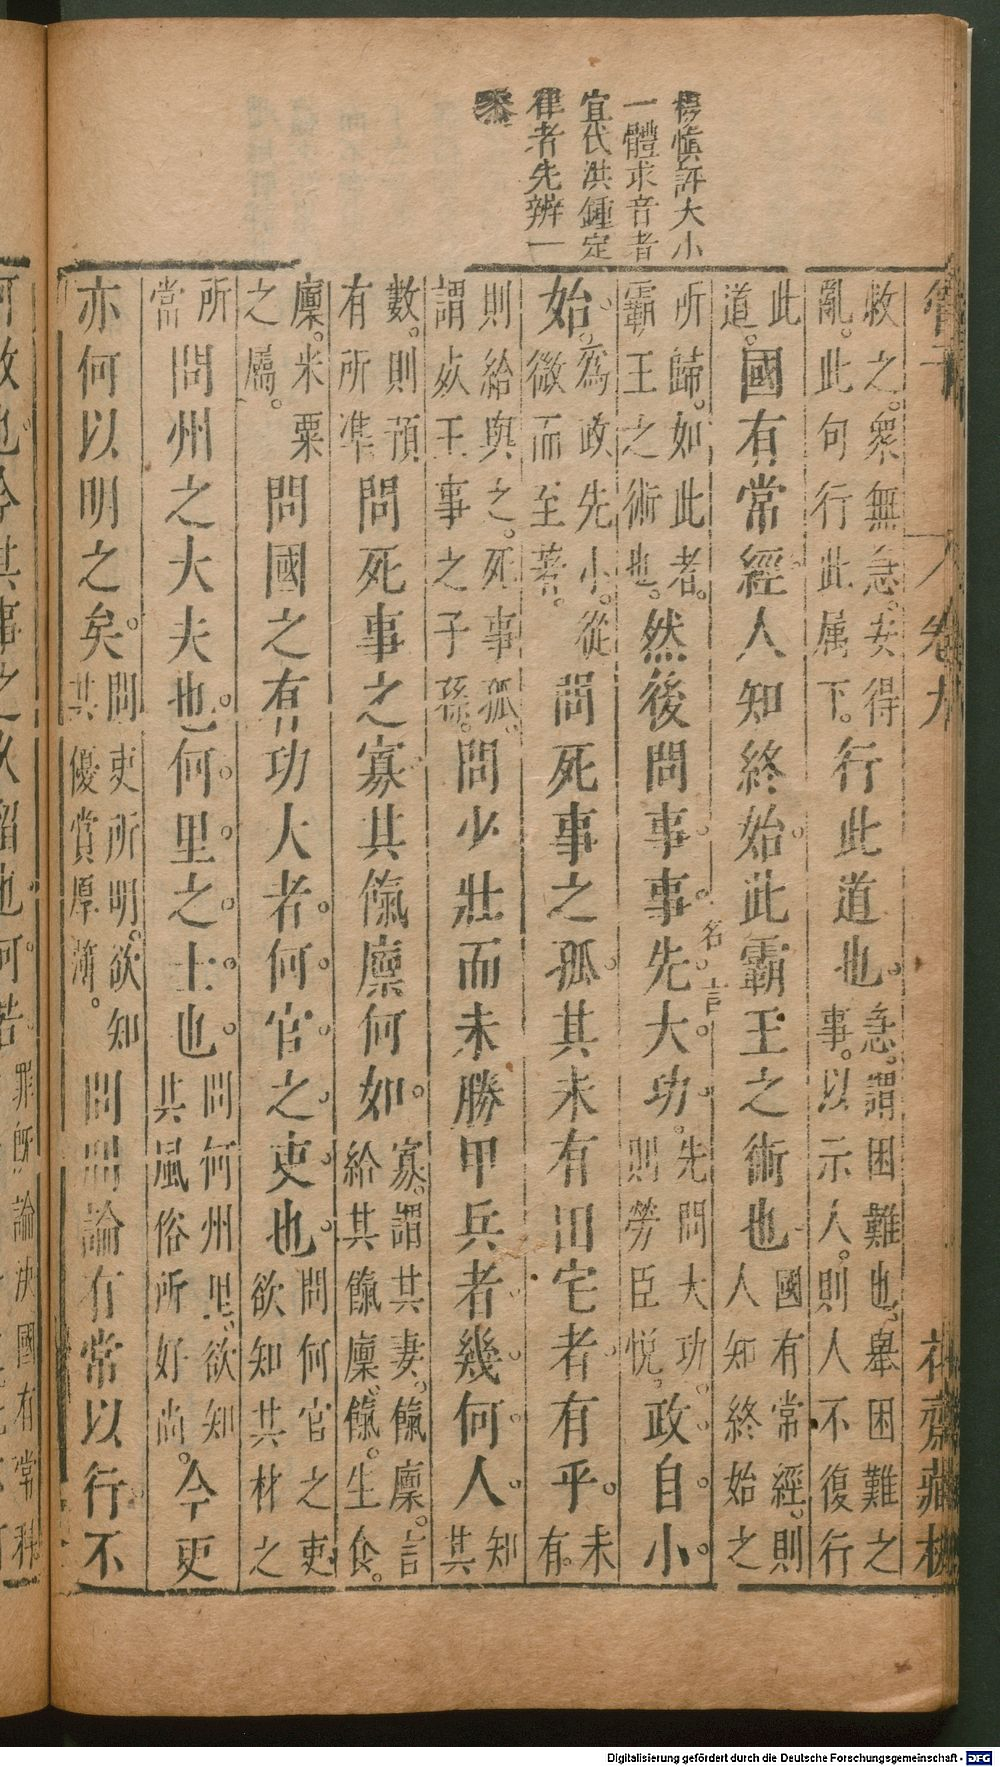 管子
卷九
花齋藏板
楊慎評大小
一體求音者
宜代洪鍾定
律者先辨一
黍
救之。衆無急。安得
亂。此句行此属下。
行此道也。
急。謂困難也。舉困難之
事。以示人。則人不復行
此
道。
國有常經人知終始。此霸王之術也
國有常經。則
人知終始之
所歸。如此者。
霸王之術也。
然後問事。事。先。大。功。
名言
先問大功。
則勞臣悅。
政。自。小。
始。
為政先小。從
微而至著。
問死事之孤。其未有田宅者有乎。
未
有。
則給與之。死事孤。
謂死王事之子孫。
問少壯而未勝甲兵者。幾。何。人。
知
其
數。則預
有所準
問死事之寡其餼廩何如。
寡。謂其妻。餼廩。言
給其餼廩。餼。生食。
廩。米粟
之屬。
問國之有功大者。何。官。之。吏。也。
問何官之吏
欲知其材之
所
當
問州之大夫也。何。里。之。士。也。
問何州里。欲知
其風俗所好尚。
今吏
亦何以明之矣。
問吏所明。欲知
其優賞厚薄。
問刑論有常以行。不
何故也。今其事之久留也。何若。
罪既論決國有常科
Digitalisierung gefördert durch die Deutsche Forschungsgemeinschaft - DFG